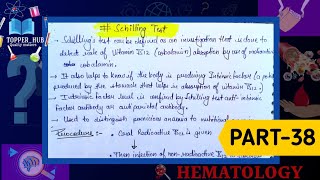 TOPPER_HUB
# Schilling Test
→ Schilling's test can be defined as an investigation that is done to
detect rate of Vitamin B12 (cobalamin) absorption by use of radioactive
cobalamin.
→ It also helps to know if the body is producing Intrinsic factor (a
produced by the stomach that helps in absorption of vitamin B12).
• Intrinsic factor level is confirmed by Schilling test anti-intrinsic
factor antibody or anti parietal antibody.
→ Used to distinguish pernicious anaemia to nutritional
Procedure :- • Oral Radioactive B12 is given
• Then injection of non-radioactive B12 is
PART-38
HEMATOLOGY